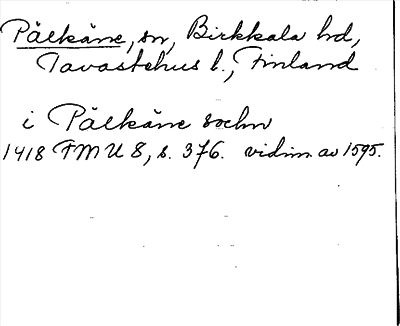 Pälkäne, sn, Birkkala hd,
Tavastehus l., Finland
i Pälkäne sochn
1418 FMU 8, s. 376. vidim. av 1595.